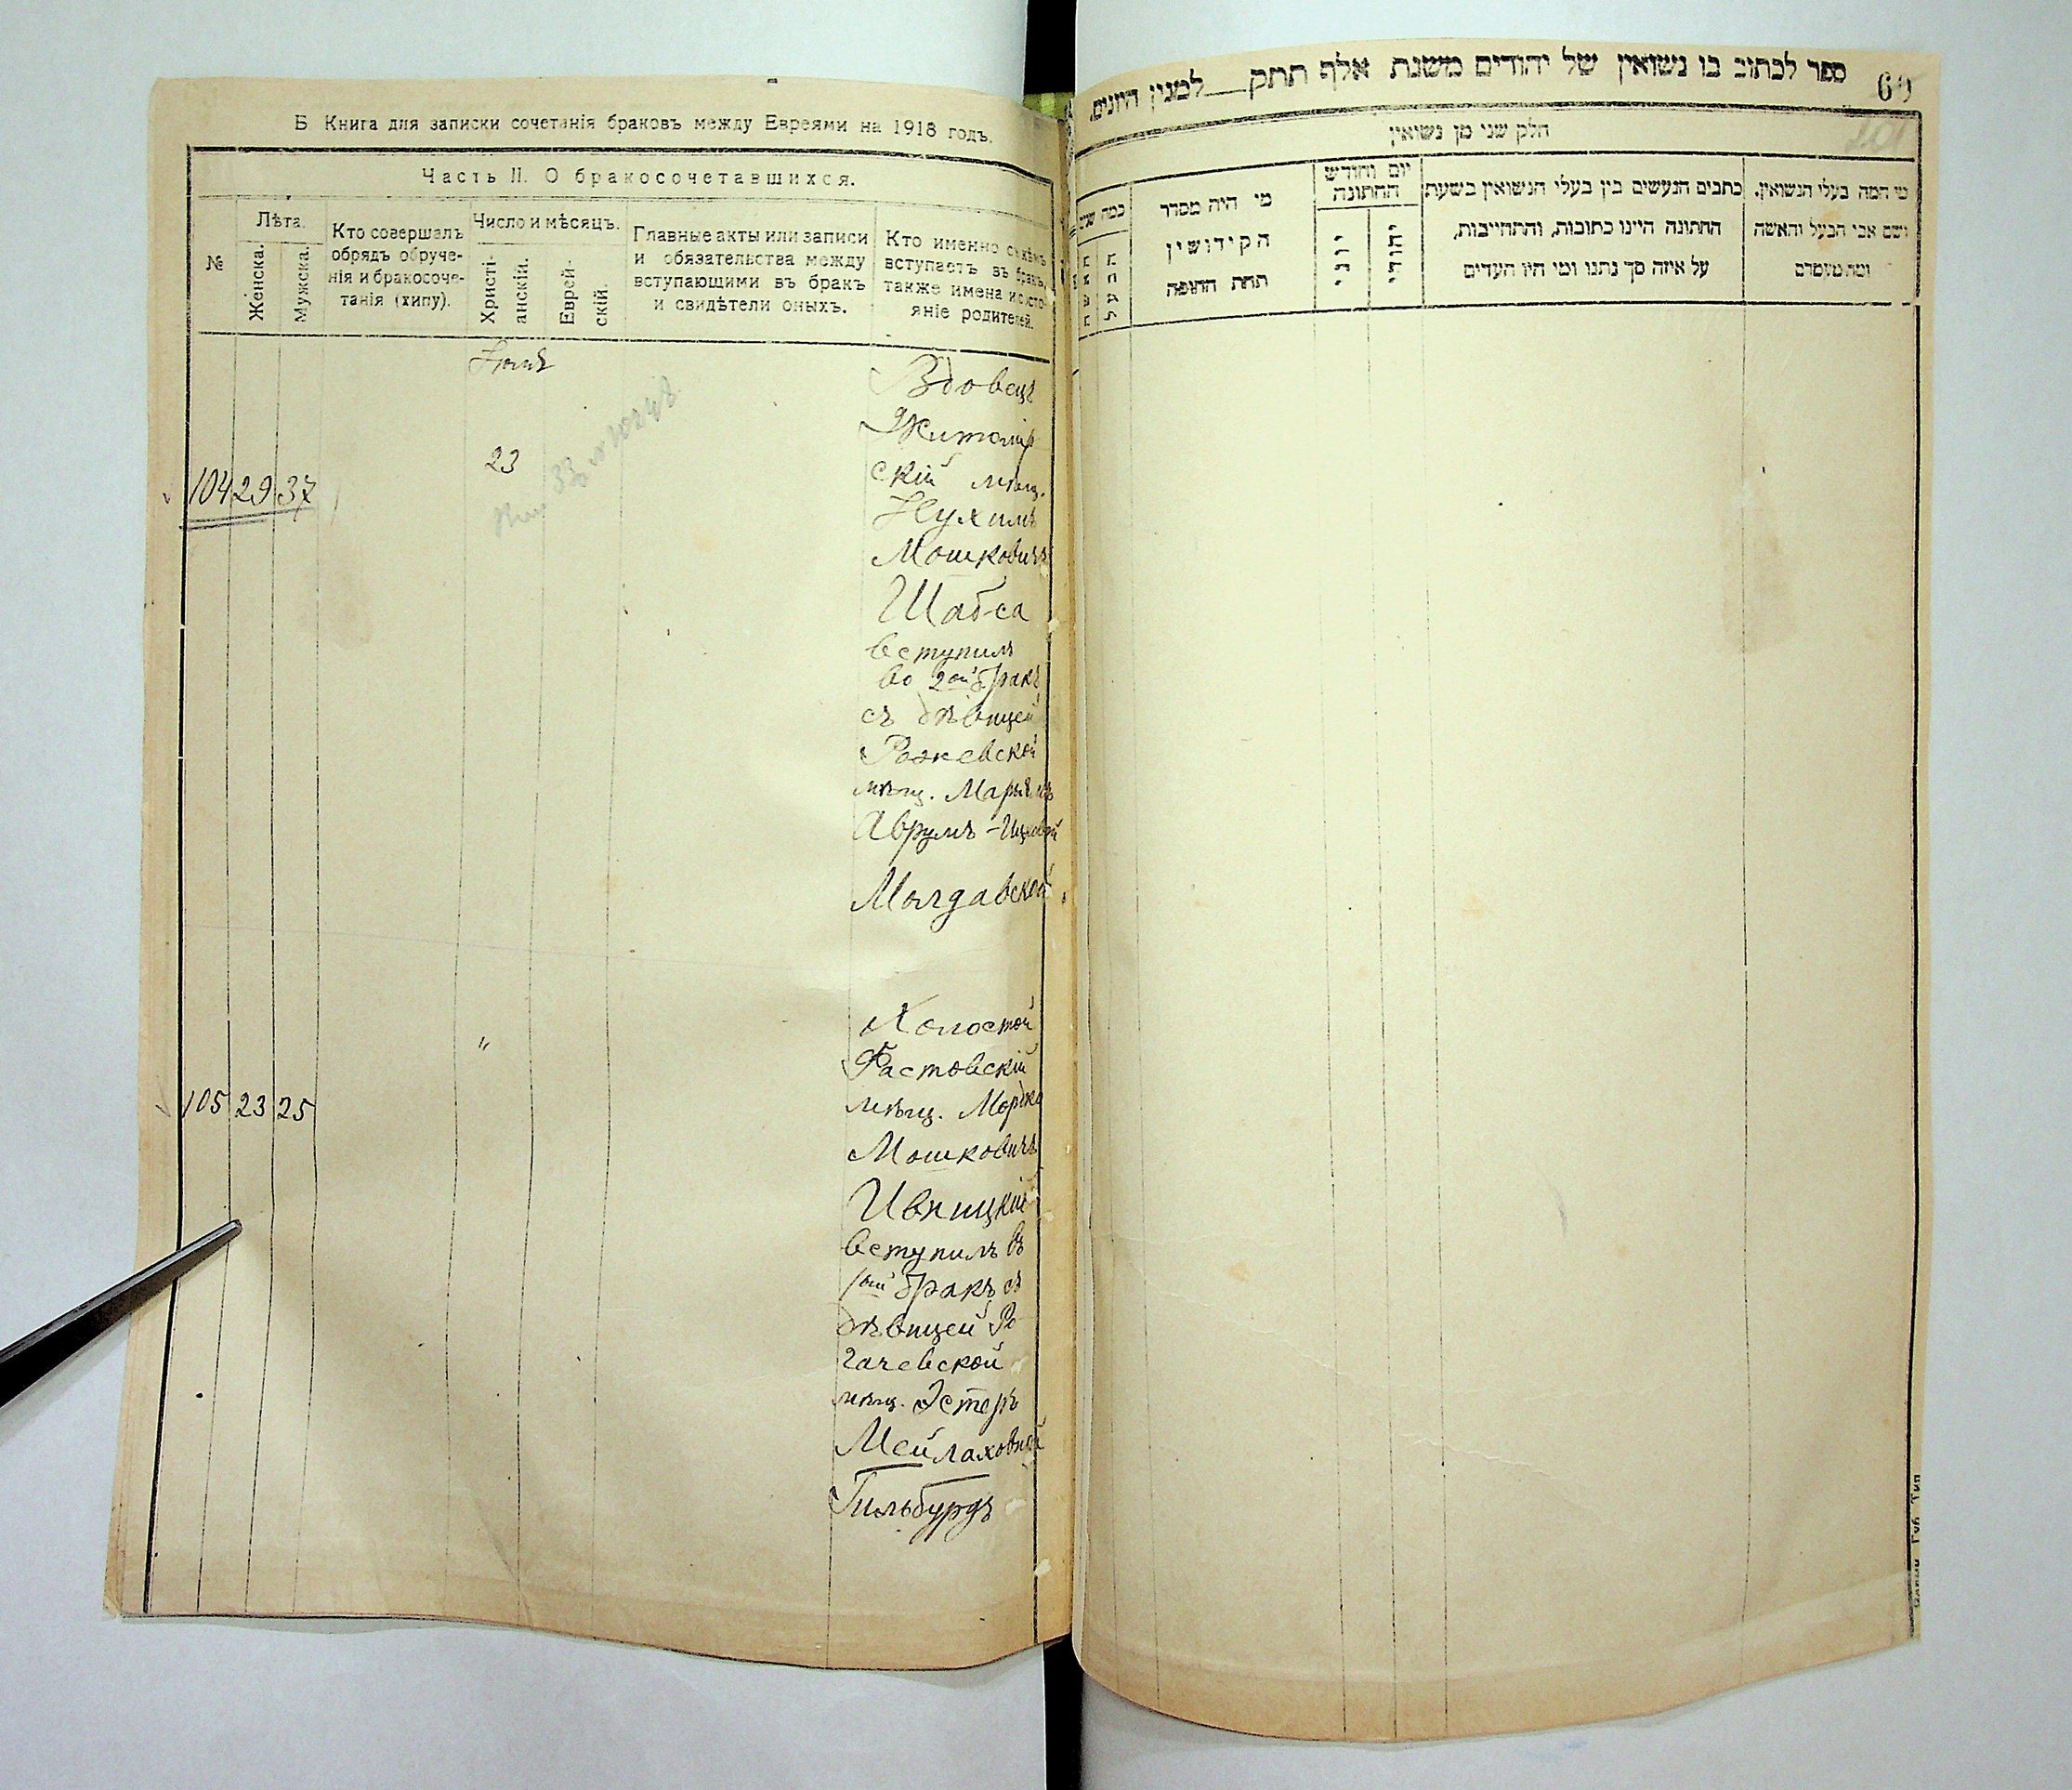 Б Книга для записки сочетанія браковъ между Евреями на 1918 годъ.
Часть II. О бракосочетавшихся.
№
Лѣта.
Женска.
Мужска.
Кто совершалъ
обрядъ обруче-
нія и бракосоче-
танія (хипу).
Число и мѣсяцъ.
Христі-
анскій.
Еврей-
скій.
Главные акты или записи
и обязательства между
вступающими въ бракъ
и свидѣтели оныхъ.
Кто именно съ кѣмъ
вступаетъ въ бракъ,
также имена и состо-
яніе родителей.
104 29 37
23
Вдовецъ
Житомір
скій мѣщ.
Нухимъ
Мошковичъ
Шабса
вступилъ
во 2ой бракъ
съ дѣвицей
Ражевской
мѣщ. Марьямъ
Аврумъ-Ицковой
Молдавской
105 23 25
"
Холостой
Фастовскій
мѣщ. Мордко
Мошковичъ
Ивницкій
вступилъ въ
1ый бракъ съ
дѣвицей Ро
гачевской
мѣщ. Эстеръ
Мейлаховной
Гильбурдъ
ספר לכתוב בו נשואין של יהודים משנת אלף תתק___למנין היונים.
69
חלק שני מן נשואין
מי המה בעלי הנשואין,
ושם אבי הבעל והאשה
ומה מעמדם
כתבים הנעשים בין בעלי הנשואין בשעת
החתונה היינו כתובות, והתחייבות,
על איזה סך נתנו ומי היו העדים
יום וחודש
החתונה
יהודי
יוני
מי היה מסדר
הקידושין
תחת החופה
כמה שנים
הבעל
האשה